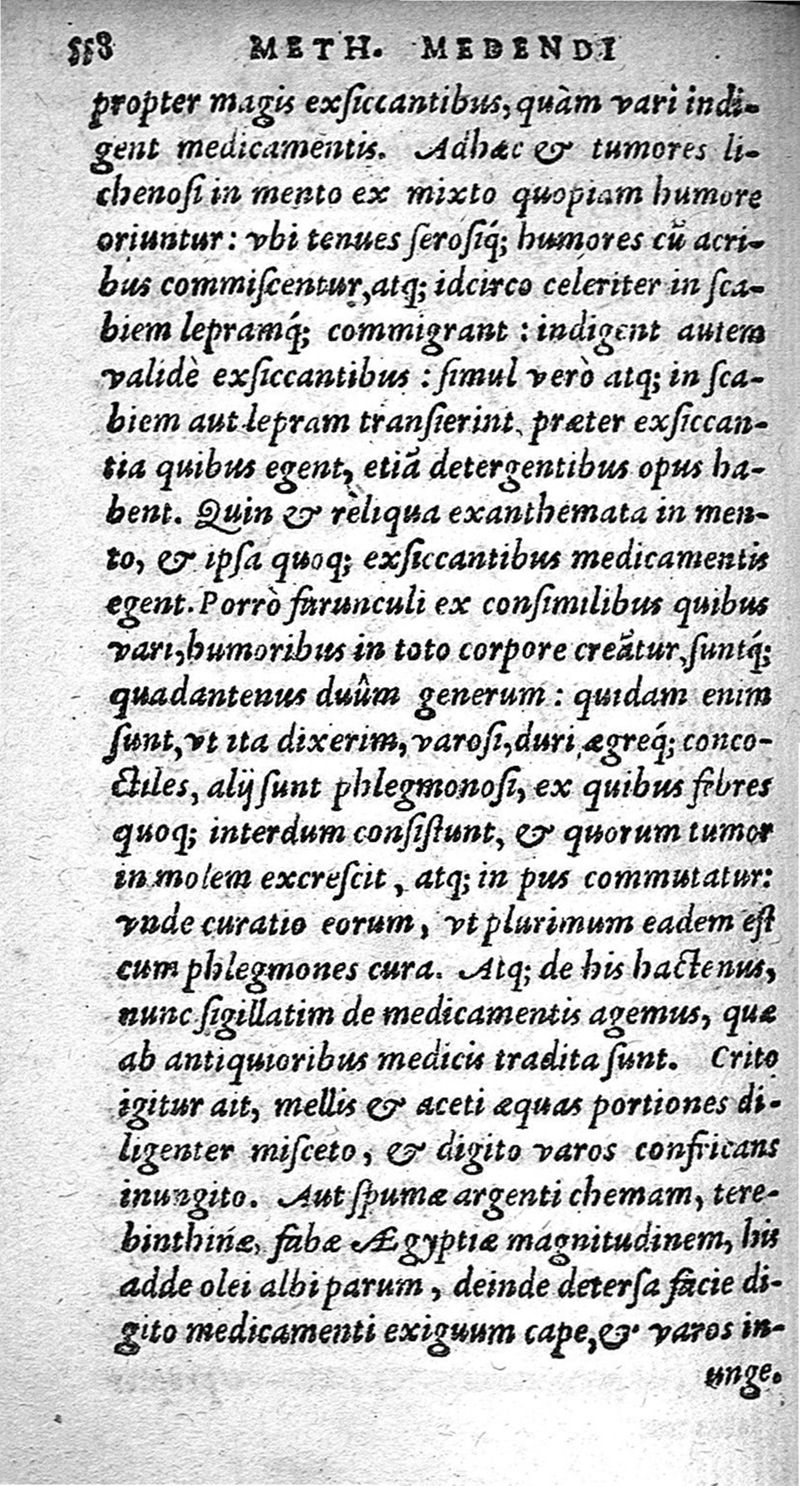 558 METH. MEDENDI
propter magis exſiccantibus, quàm vari indi-
gent medicamentis. Adhæc & tumores li-
chenoſi in mento ex mixto quopiam humore
oriuntur: vbi tenues ſeroſiq́; humores cū acri-
bus commiſcentur, atq; idcirco celeriter in ſca-
biem lepramq́; commigrant: indigent autem
validè exſiccantibus: ſimul verò atq; in ſca-
biem aut lepram tranſierint, præter exſiccan-
tia quibus egent, etiā detergentibus opus ha-
bent. Quin & rèliqua exanthemata in men-
to, & ipſa quoq; exſiccantibus medicamentis
egent. Porrò furunculi ex conſimilibus quibus
vari, humoribus in toto corpore creātur, ſuntq́;
quadantenus duûm generum: quidam enim
ſunt, vt ita dixerim, varoſi, duri, ægreq́; conco-
ctiles, alij ſunt phlegmonoſi, ex quibus febres
quoq; interdum conſiſtunt, & quorum tumor
in molem excreſcit, atq; in pus commutatur:
vnde curatio eorum, vt plurimum eadem eſt
cum phlegmones cura. Atq; de his hactenus,
nunc ſigillatim de medicamentis agemus, quæ
ab antiquioribus medicis tradita ſunt. Crito
igitur ait, mellis & aceti æquas portiones di-
ligenter miſceto, & digito varos confricans
inungito. Aut ſpumæ argenti chemam, tere-
binthinæ, fabæ Ægyptiæ magnitudinem, his
adde olei albi parum, deinde deterſa facie di-
gito medicamenti exiguum cape, & varos in-
unge.